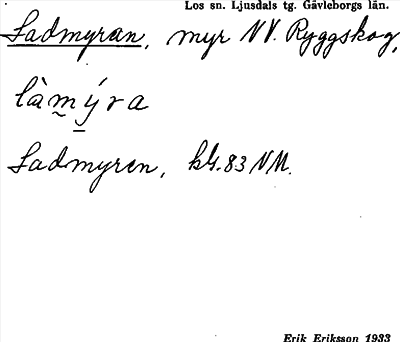 Los sn. Ljusdals tg. Gävleborgs län.
Ladmyran, myr NV. Ryggskog,
làm̰ý̱ra
Ladmyren, bl. 83 NM.
Erik Eriksson 1933